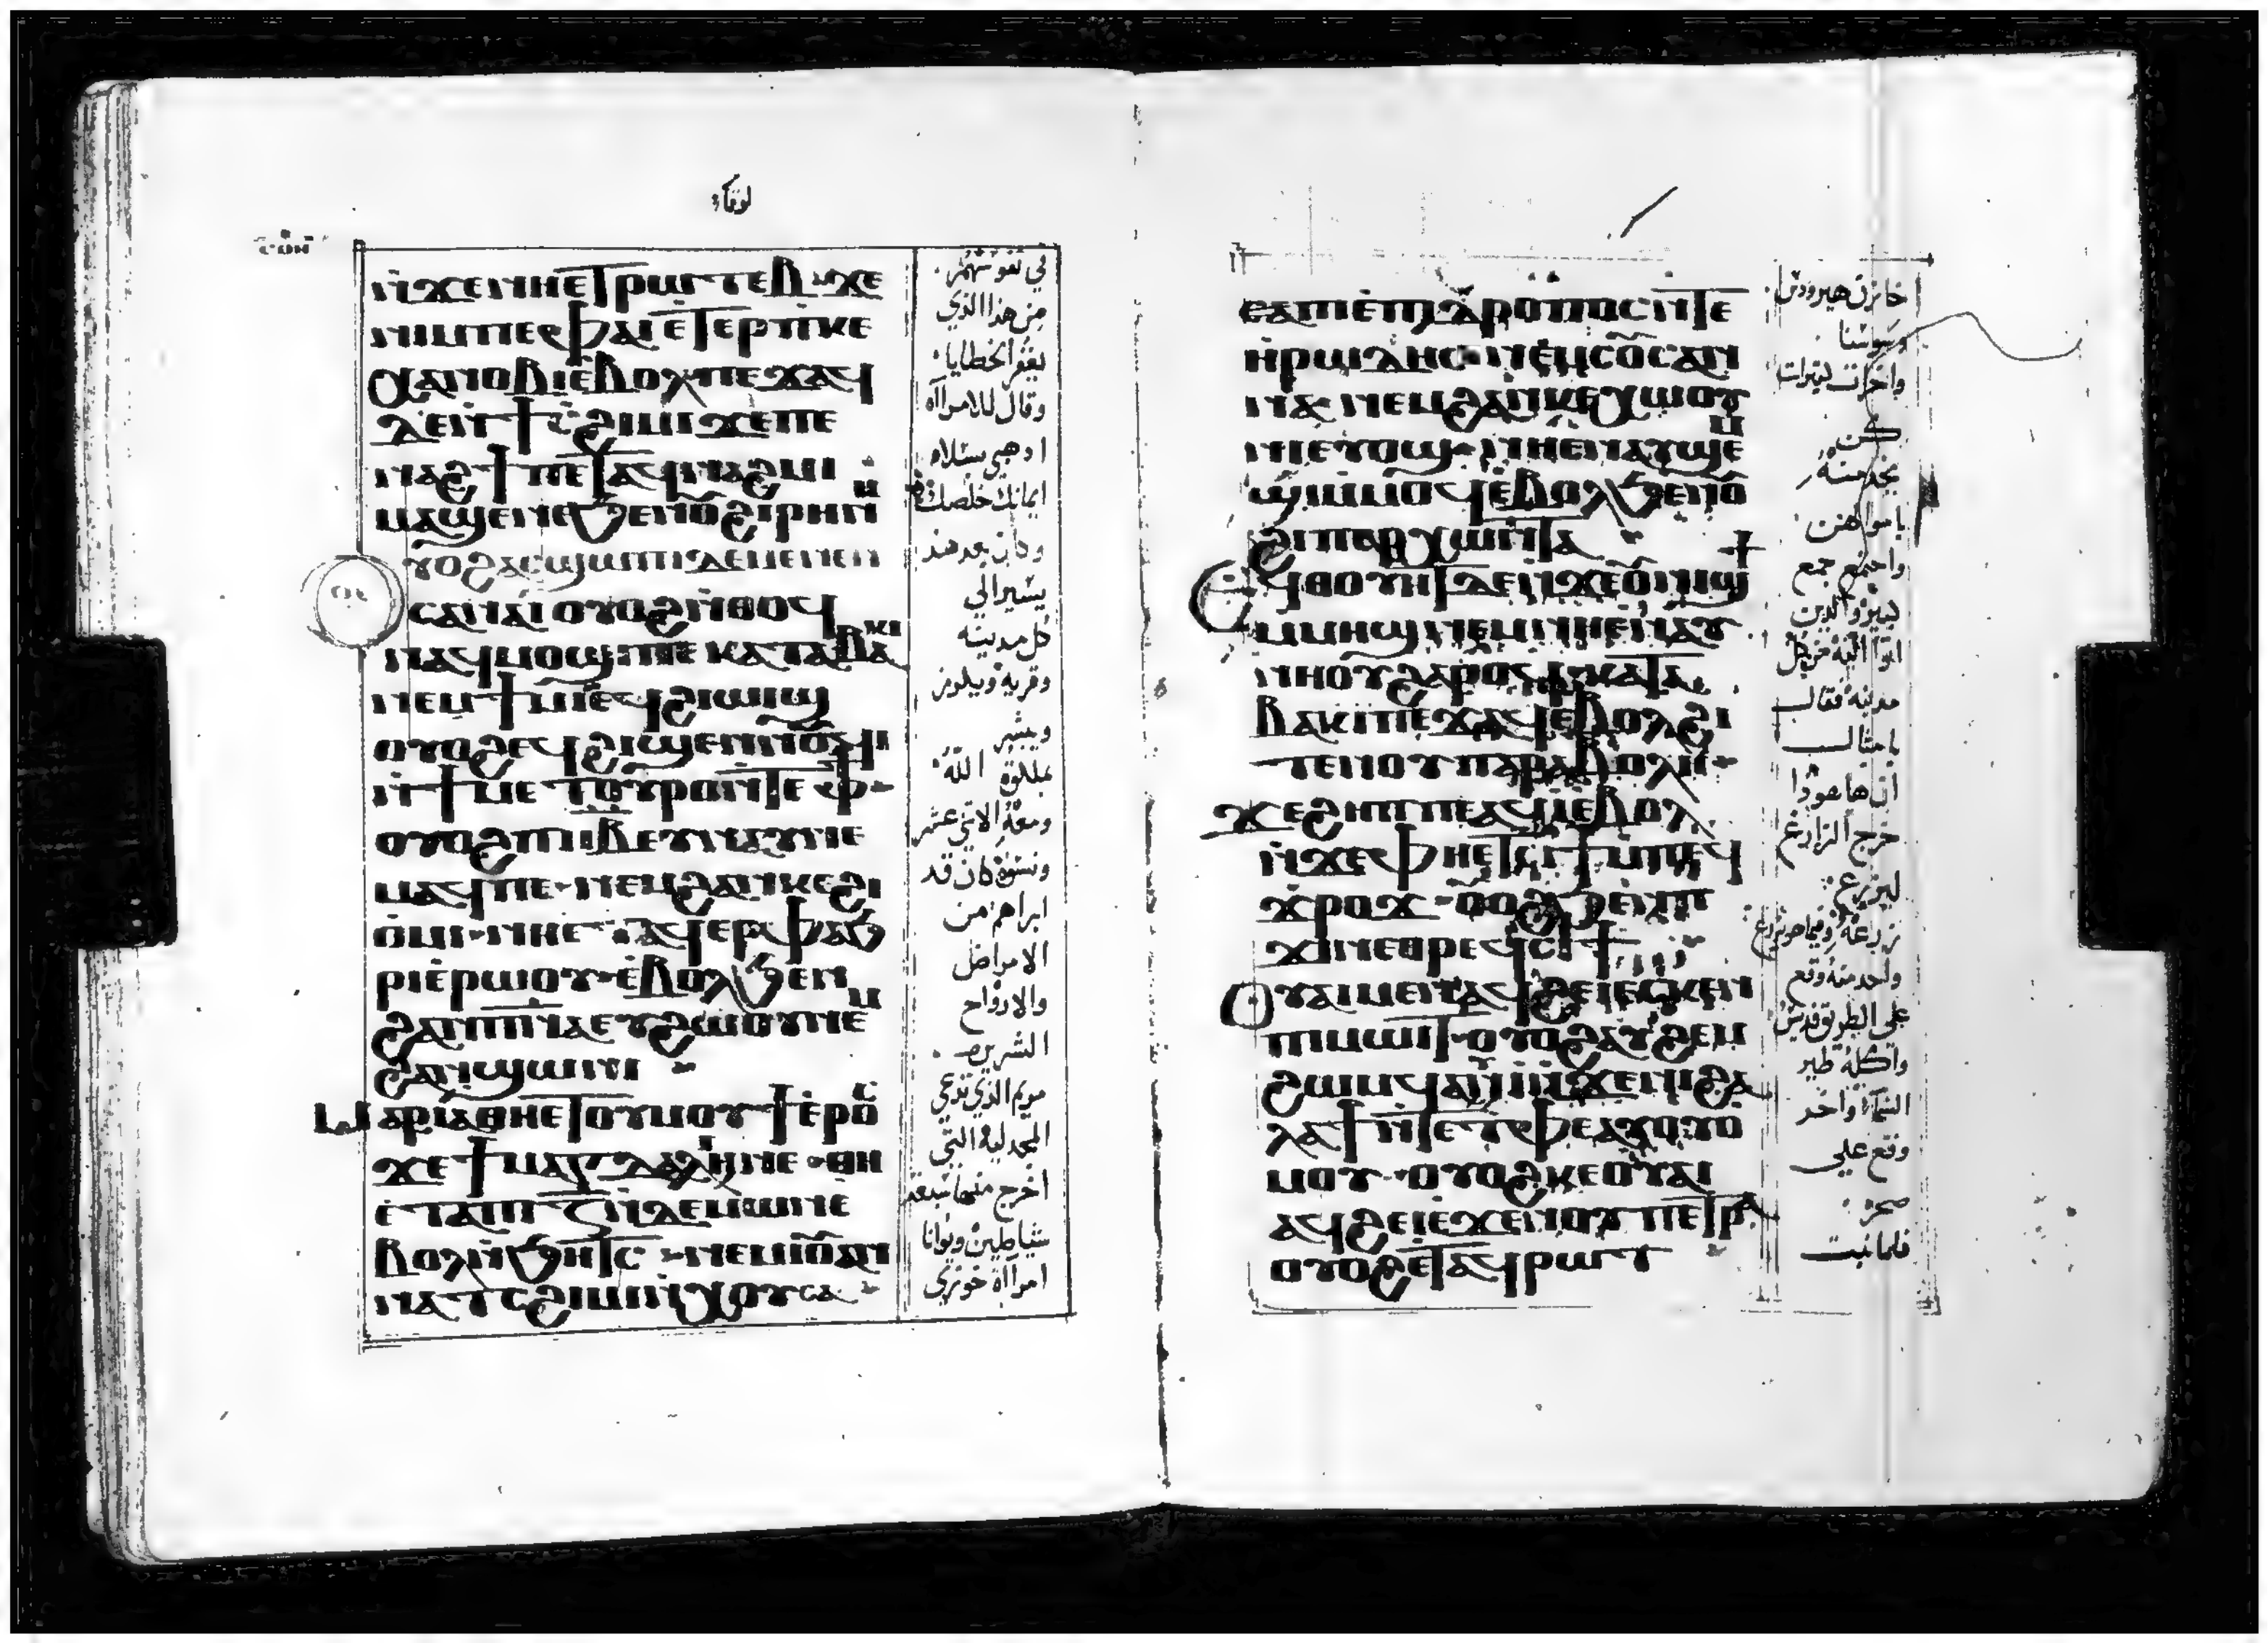 لوقا
ⲛ̇ϫⲉⲛⲏⲉⲧⲣⲱⲧⲉⲃ ϫⲉ
ⲛⲓⲙⲡⲉⲫⲁⲓⲉⲧⲉⲣⲡⲕⲉ
ⲭⲁⲛⲟⲃⲓⲉⲃⲟⲗⲡⲉϫⲁϥ
ⲇⲉⲛϯⲥϩⲓⲙⲓϫⲉⲡⲉ
ⲛⲁϩϯⲡⲉⲧⲁϥⲛⲁϩⲙⲓ
ⲙⲁϣⲉⲛⲉϧⲉⲛⲟϩⲓⲣⲏⲛ
ⲩⲟϩⲁⲥϣⲱⲡⲓⲇⲉⲙⲉⲛⲉⲛ
ⲥⲁⲛⲁⲓⲟⲩⲟϩⲛ̇ⲑⲟϥ
ⲛⲁϥⲙⲟϣⲓⲡⲉⲕⲁⲧⲁⲃⲁⲕⲓ
ⲛⲉⲙϯⲙⲓⲉϥϩⲓⲱⲓϣ
ⲟⲩⲟϩⲉϥϩⲓϣⲉⲛⲛⲟϥⲓ
ⲛ̇ϯⲙⲉⲧⲟⲩⲣⲟⲛ̇ⲧⲉⲫϯ
ⲟⲩⲟϩⲡⲓⲓⲃⲉⲩⲛⲁⲩⲛⲉ
ⲙⲁϥⲡⲉ ⲛⲉⲙϩⲁⲛⲕⲉϩⲓ
ⲟⲙⲓ ⲛⲏⲉⲧⲁϥⲉⲣⲫⲁϧ
ⲣⲓⲉⲣⲱⲟⲩ ⲉⲃⲟⲗϧⲉⲛ
ϩⲁⲛⲡⲛⲁⲉⲩϩⲱⲟⲩⲛⲉⲙ
ϩⲁⲛϣⲱⲛⲓ
ⲙⲁⲣⲓⲁⲑⲏⲉⲧⲟⲩⲙⲟⲩϯⲉⲣⲟⲥ
ϫⲉϯⲙⲁⲅⲇⲁⲗⲏⲛⲉ ⲑⲏ
ⲉⲧⲁⲡⲓⲍⲛ̇ⲇⲉⲙⲱⲛⲓⲉ
ⲃⲟⲗⲛ̇ϧⲏⲧⲥ ⲛⲉⲙⲓⲱⲁⲛ
ⲛⲁⲧⲥϩⲓⲙⲓⲛ̇ⲭⲟⲩⲥⲁ
في نفوسهم
من هذا الذي
يغفر الخطايا
وقال للامراه
اذهبي بسلام
ايمانك خلصك
وكان بعد هذا
يسير الي
كل مدينه
وقريه
ويبشر
بملكوة الله
ومعه الاثني عشر
ونسوة كان قد
ابراهم من
الامراض
والارواح
الشريره
مريم الذي تدعي
المجدليه التي
اخرج منها سبعة
شياطين ويوانا
امراة خوزي
ⲉⲡⲓⲧⲣⲟⲡⲟⲥⲛ̇ⲧⲉ
ⲏⲣⲱⲇⲏⲥ ⲛⲉⲙⲥⲟⲥⲁⲛ
ⲛⲁ ⲛⲉⲙϩⲁⲛⲕⲉⲭⲱⲟⲩ
ⲛⲓⲉⲩⲟϣ ⲛⲏⲉⲛⲁⲩϣⲉⲙ
ϣⲓⲙⲙⲟϥⲉⲃⲟⲗϧⲉⲛⲟ
ϩⲓⲡⲁⲣⲭⲱⲛⲧⲁ
ⲉϥⲑⲟⲩⲏⲧⲇⲉⲛ̇ϫⲉⲟⲩⲛⲓϣ
ⲙⲙⲏϣ ⲛⲉⲙⲛⲏⲉⲛⲁⲩ
ⲛⲏⲟⲩϩⲁⲣⲟϥ ⲕⲁⲧⲁ
ⲃⲁⲕⲓⲡⲉϫⲁϥⲉⲃⲟⲗϩⲓ
ⲧⲉⲛⲟⲩⲡⲁⲣⲁⲃⲟⲗⲏ
ϫⲉϩⲏⲡⲡⲉⲁϥⲓⲉⲃⲟⲗ
ⲛ̇ϫⲉⲫⲏⲉⲧⲥⲓϯⲙⲡⲉϥ
ϫⲣⲟϫ ⲟⲩⲟϩϧⲉⲛⲡ
ϫⲓⲛⲉⲑⲣⲉϥⲥⲓϯ
ⲟⲩⲁⲓⲙⲉⲛⲁϥϩⲉⲓⲉⲥⲕⲉⲛ
ⲡⲓⲙⲱⲓⲧ ⲟⲩⲟϩⲁⲩϩⲉⲙ
ϩⲱⲙϥⲁⲩⲓⲛ̇ϫⲉⲛⲓϩⲁ
ⲗⲁϯⲛ̇ⲧⲉⲧⲫⲉⲁⲩⲟⲩⲟ
ⲙⲟⲩ ⲟⲩⲟϩⲕⲉⲟⲩⲁⲓ
ⲁϥϩⲉⲓⲉϫⲉⲛⲟⲩⲡⲉⲧⲣⲁ
ⲟⲩⲟϩⲉⲧⲁϥⲣⲱⲧ
خازن هيرودس
وسوسنا
واخرات كثيرات
كن
يخدمنه
باموالهن
واجتمع جمع
كبير والذين
اتوا اليه من كل
مدينة فقال
بامثال
ان هاهوذا
خرج الزارع
ليزرع
زرعه وفيما هو يزرع
واحد منه وقع
علي الطريق فديس
واكله طير
السماء واخر
وقع علي
صخره
فلما نبت